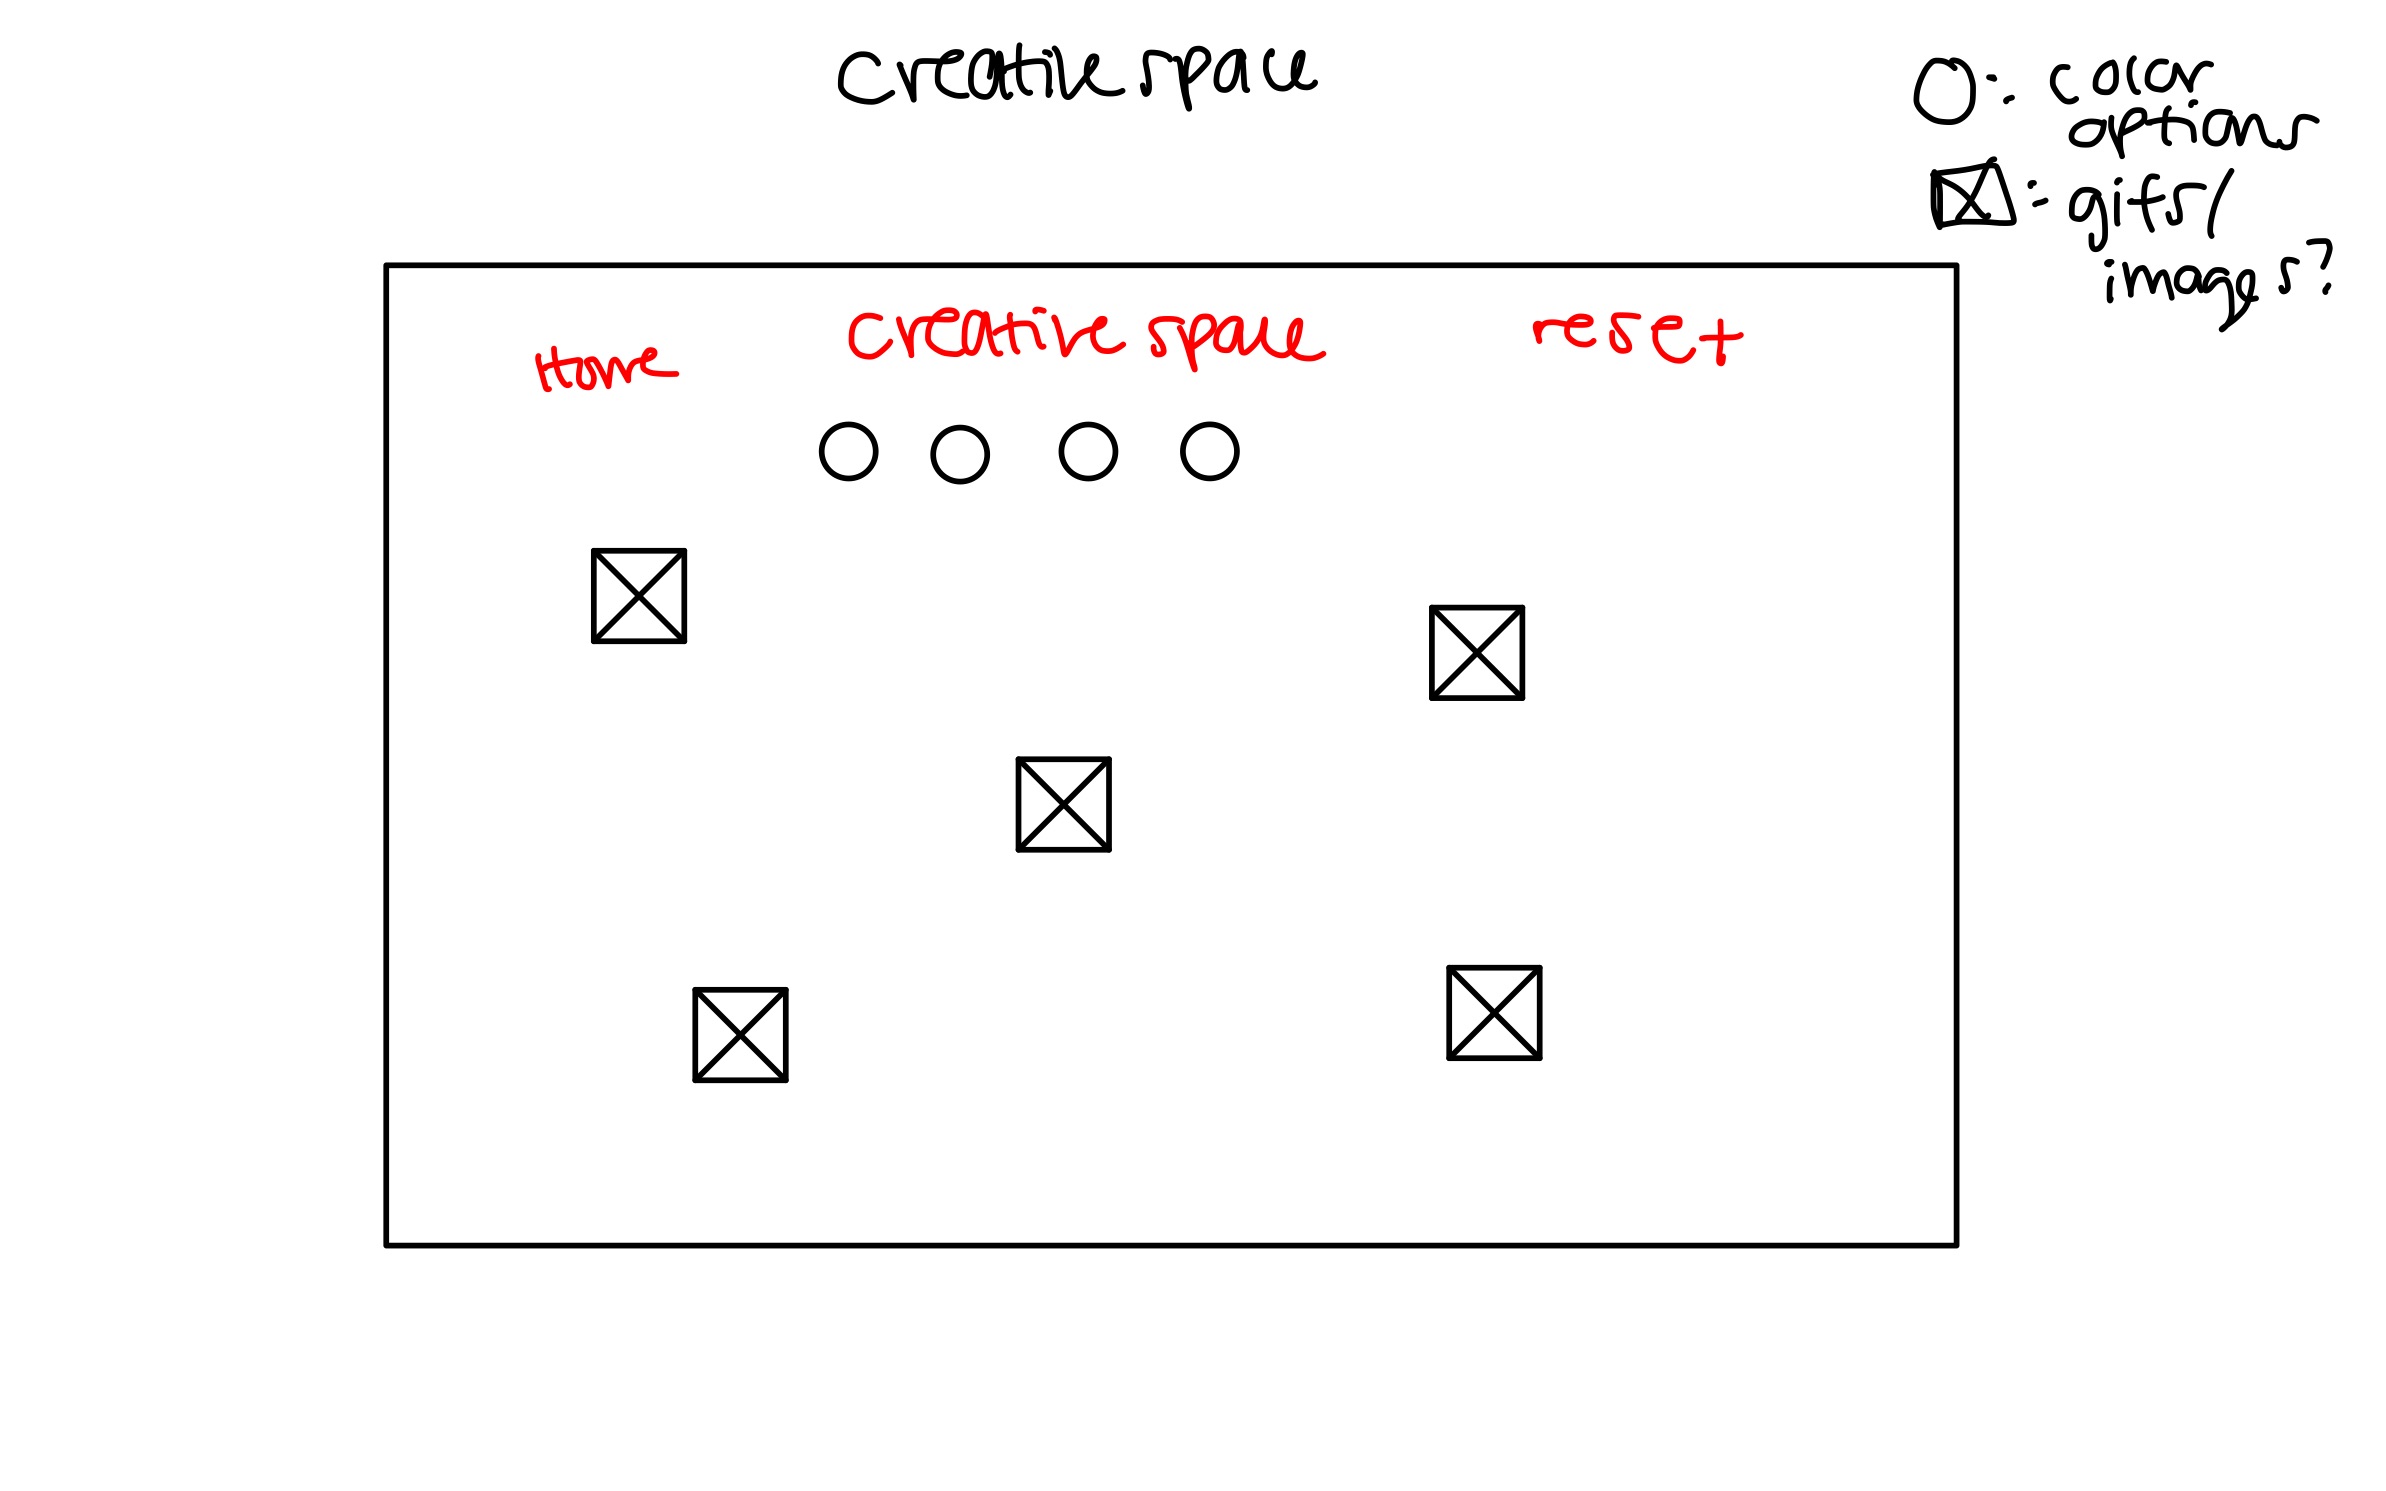 creative space
: color
options
: gifs/
images?
Home
creative space
reset